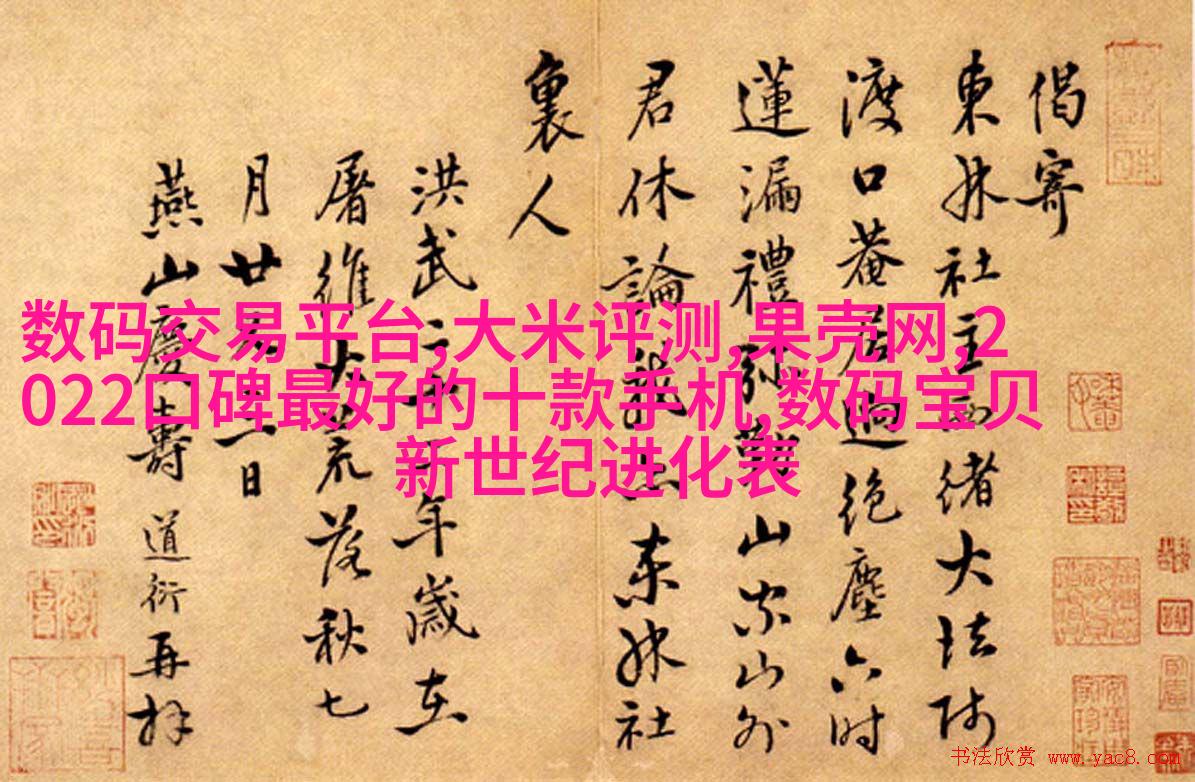 偈寄
東林社主西緒大法师
渡口菴居迥絶塵六时
蓮漏禮弥勤山家山外
君休論 东林社
裏人
洪武二十年歲在
屠維大荒落秋七
月廿一日
燕山慶壽道衍再拜
数码交易平台,大米评测,果壳网,2
022口碑最好的十款手机,数码宝贝
新世纪进化表
书法欣赏 www.yac8.com